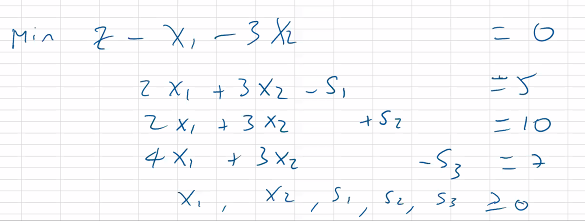 Min z - x₁ - 3x₂ = 0
2x₁ + 3x₂ - s₁ = 5
2x₁ + 3x₂ + s₂ = 10
4x₁ + 3x₂ - s₃ = 7
x₁, x₂, s₁, s₂, s₃ ≥ 0